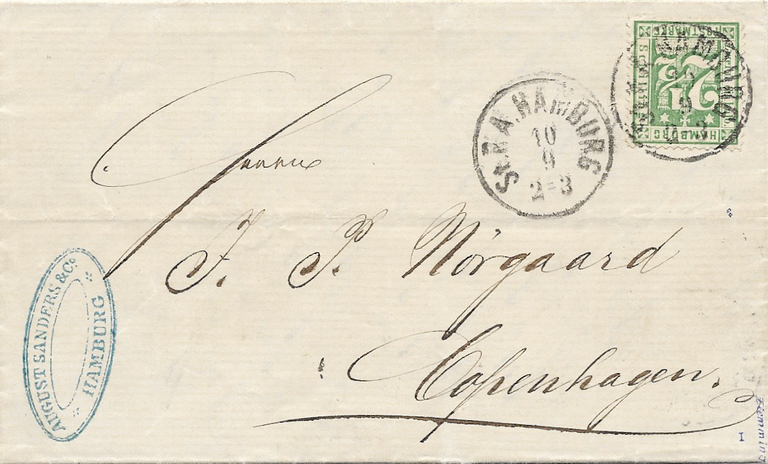 HAMBURG
2½
HAMBURG
St.P.A. HAMBURG
10
9
2-3
Herrn
J. P. Nörgaard
Copenhagen.
AUGUST SANDERS & Co.
HAMBURG
I